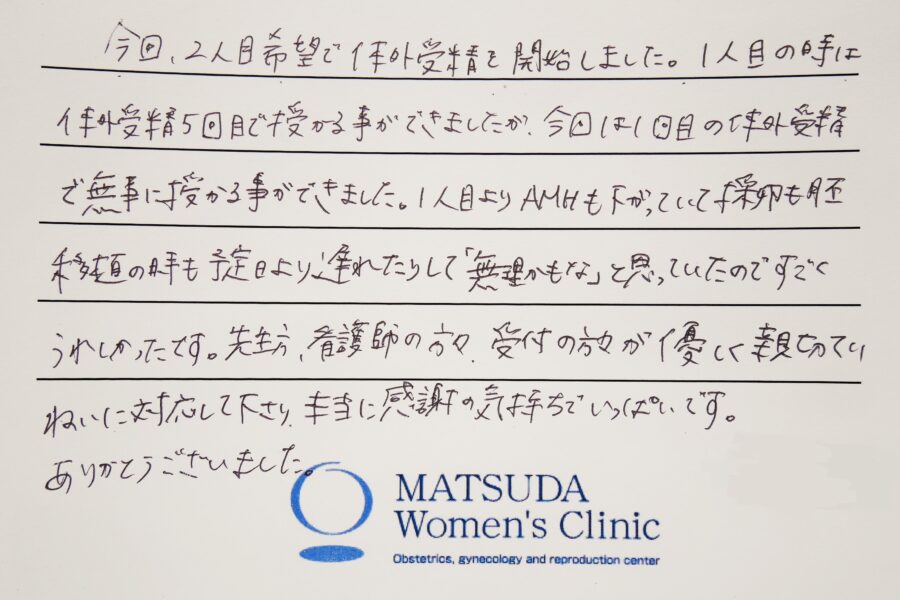 今回、2人目希望で体外受精を開始しました。1人目の時は
体外受精5回目で授かる事ができましたが、今回は1回目の体外受精
で無事に授かる事ができました。1人目よりAMHも下がっていて採卵も胚
移植の時も予定日より遅れたりして「無理かもな」と思っていたのですごく
うれしかったです。先生方、看護師の方々、受付の方々が優しく親切てい
ねいに対応して下さり、本当に感謝の気持ちでいっぱいです。
ありがとうございました。
MATSUDA
Women's Clinic
Obstetrics, gynecology and reproduction center